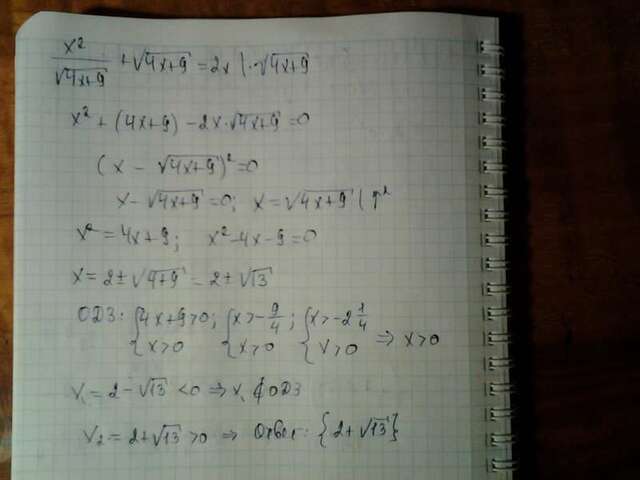 x²/√(4x+9) + √(4x+9) = 2x | ·√(4x+9)
x² + (4x+9) − 2x·√(4x+9) = 0
(x − √(4x+9))² = 0
x − √(4x+9) = 0; x = √(4x+9) | ↑²
x² = 4x+9; x² − 4x − 9 = 0
x = 2 ± √(4+9) = 2 ± √13
ОДЗ: {4x+9>0; x>0 {x>−9/4; x>0 {x>−2 1/4 x>0 ⇒ x>0
x₁ = 2 − √13 < 0 ⇒ x₁ ∉ ОДЗ
x₂ = 2 + √13 > 0 ⇒ Ответ: {2 + √13}